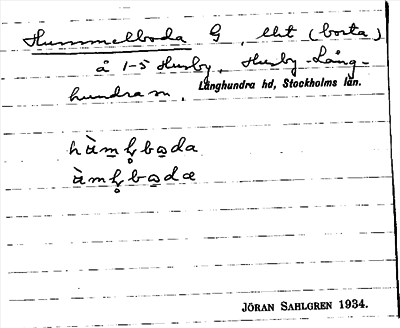 Hummelboda G, lht (borta)
å 1-5 Husby, Husby-Lång-
hundra sn.
Långhundra hd, Stockholms län.
hàmḷboda
àmḷboda
JÖRAN SAHLGREN 1934.